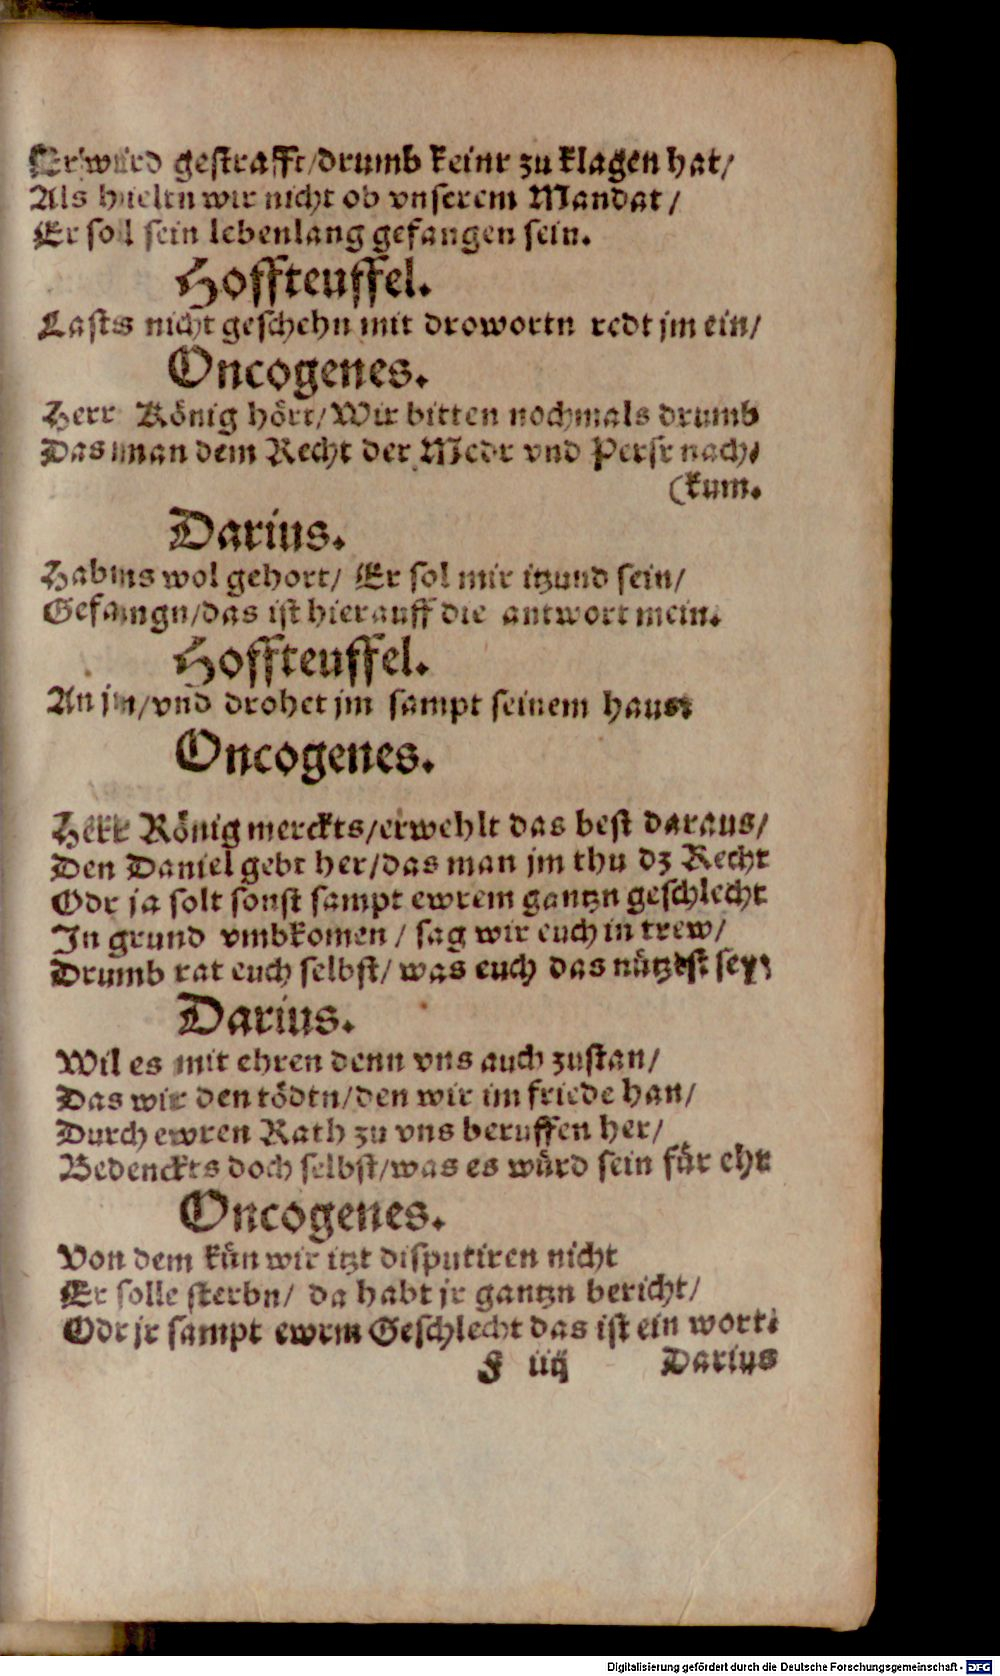 Er würd gestrafft/drumb keinr zu klagen hat/
Als hieltn wir nicht ob vnserem Mandat /
Er soll sein lebenlang gefangen sein.
Hoffteuffel.
Lasts nicht geschehn mit drowortn redt jm ein/
Oncogenes.
Herr König hört/Wir bitten nochmals drumb
Das man dem Recht der Medr vnd Persr nach/
(kum.
Darius.
Habms wol gehort/ Er sol mir itzund sein/
Gefangn/das ist hierauff die antwort mein.
Hoffteuffel.
An jm/vnd drohet jm sampt seinem haus:
Oncogenes.
Herr König merckts/erwehlt das best daraus/
Den Daniel gebt her/das man jm thu dz Recht
Odr ja solt sonst sampt ewrem gantzn geschlecht
In grund vmbkomen / sag wir euch in trew/
Drumb rat euch selbst/ was euch das nützest sey;
Darius.
Wil es mit ehren denn vns auch zustan/
Das wir den tödtn/den wir im friede han/
Durch ewren Rath zu vns beruffen her/
Bedenckts doch selbst/was es würd sein für ehr
Oncogenes.
Von dem kün wir itzt disputiren nicht
Er solle sterbn/ da habt jr gantzn bericht/
Odr jr sampt ewrm Geschlecht das ist ein wort:
F iiij Darius
Digitalisierung gefördert durch die Deutsche Forschungsgemeinschaft - DFG